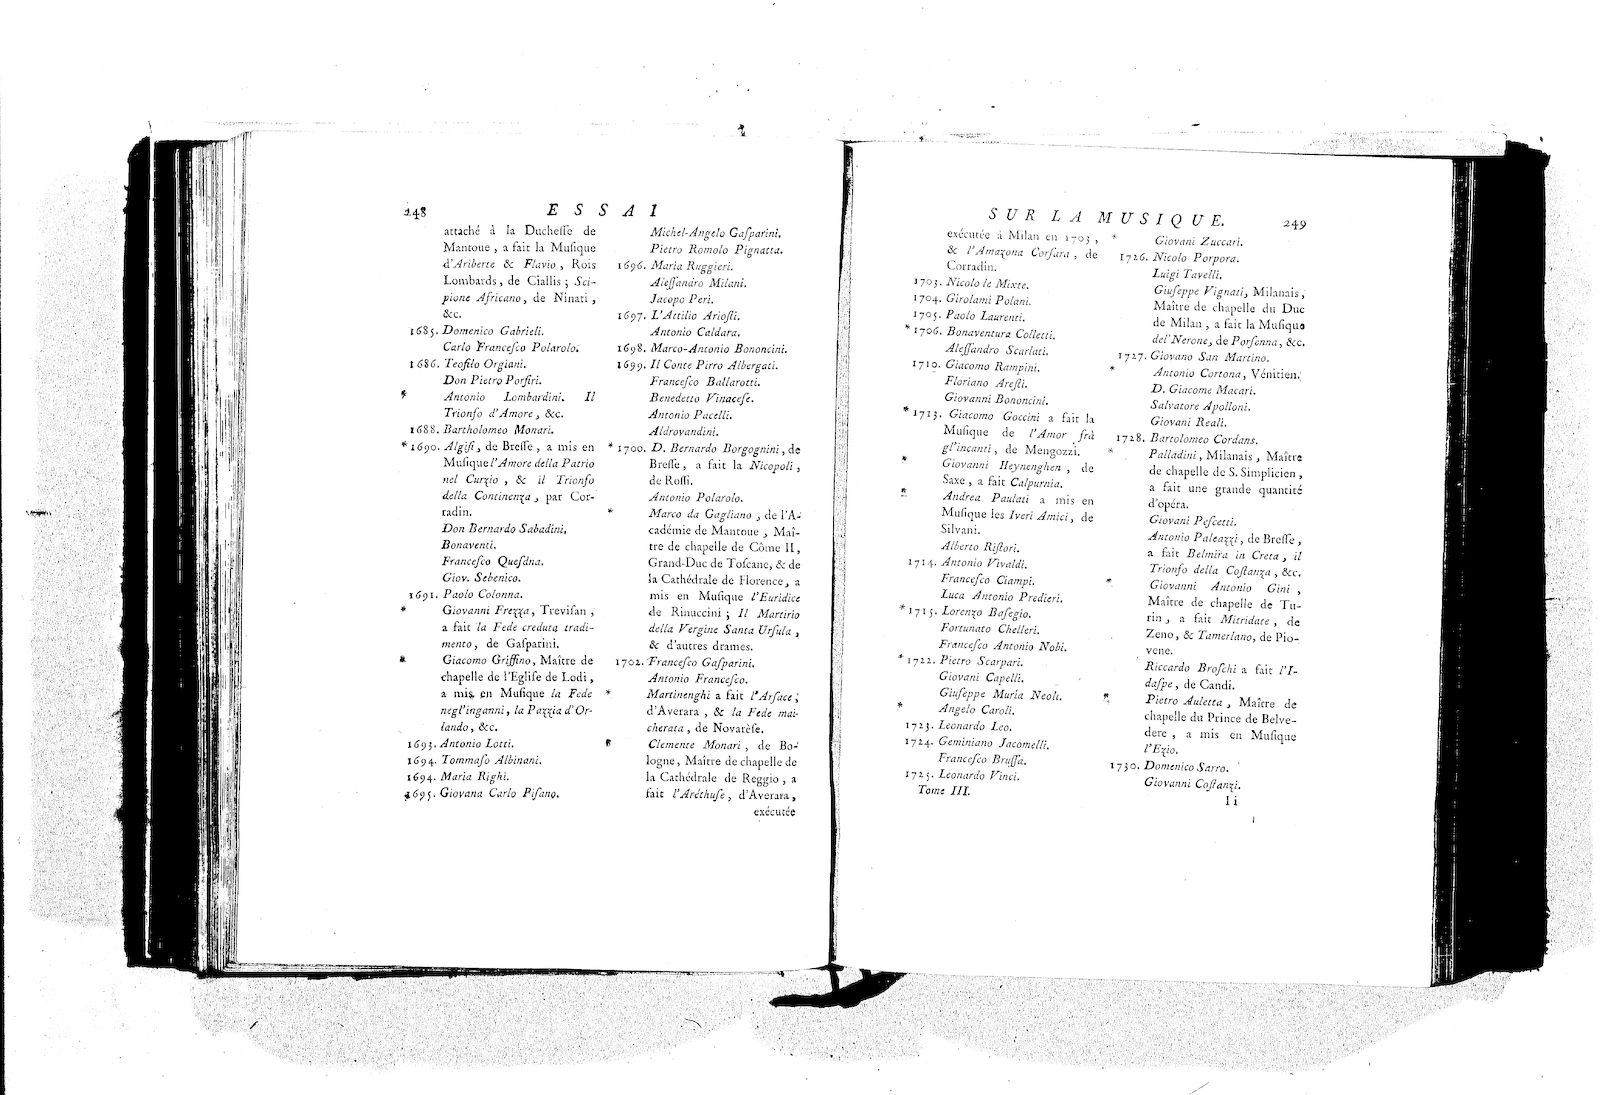 248 ESSAI
attaché à la Ducheſſe de
Mantoue, a fait la Muſique
d'Ariberte & Flavio, Rois
Lombards, de Ciallis; Sci-
pione Africano, de Ninati,
&c.
1685. Domenico Gabrieli.
Carlo Franceſco Polarolo.
1686. Teofilo Orgiani.
Don Pietro Porfiri.
* Antonio Lombardini. Il
Trionfo d'Amore, &c.
1688. Bartholomeo Monari.
* 1690. Algiſi, de Breſſe, a mis en
Muſique l'Amore della Patria
nel Curzio, & il Trionfo
della Continenza, par Cor-
radin.
Don Bernardo Sabadini,
Bonaventi.
Franceſco Queſdna.
Giov. Sebenico.
1691. Paolo Colonna.
* Giovanni Frezza, Treviſan,
a fait la Fede creduta tradi-
mento, de Gaſparini.
* Giacomo Griffino, Maître de
chapelle de l'Egliſe de Lodi,
a mis en Muſique la Fede
negl'inganni, la Pazzia d'Or-
lando, &c.
1693. Antonio Lotti.
1694. Tommaſo Albinani.
1694. Maria Righi.
1695. Giovana Carlo Piſano.
Michel-Angelo Gaſparini.
Pietro Romolo Pignatta.
1696. Maria Ruggieri.
Aleſſandro Milani.
Jacopo Peri.
1697. L'Attilio Arioſti.
Antonio Caldara.
1698. Marco-Antonio Bononcini.
1699. Il Conte Pirro Albergati.
Franceſco Ballarotti.
Benedetto Vinaceſe.
Antonio Pacelli.
Aldrovandini.
* 1700. D. Bernardo Borgognini, de
Breſſe, a fait la Nicopoli,
de Roſſi.
Antonio Polarolo.
* Marco da Gagliano, de l'A-
cadémie de Mantoue, Maî-
tre de chapelle de Côme II,
Grand-Duc de Toſcane, & de
la Cathédrale de Florence, a
mis en Muſique l'Euridice
de Rinuccini; Il Martirio
della Vergine Santa Urſula,
& d'autres drames.
1702. Franceſco Gaſparini.
Antonio Franceſco.
* Martinenghi a fait l'Arſace;
d'Averara, & la Fede mai-
cherata, de Novarèſe.
* Clemente Monari, de Bo-
logne, Maître de chapelle de
la Cathédrale de Reggio, a
fait l'Aréthuſe, d'Averara,
exécutée
SUR LA MUSIQUE. 249
exécutée à Milan en 1703,
& l'Amazona Corſara, de
Corradin.
1703. Nicolo le Mixte.
1704. Girolami Polani.
1705. Paolo Laurenti.
* 1706. Bonaventura Colletti.
Aleſſandro Scarlati.
1710. Giacomo Rampini.
Floriano Areſti.
Giovanni Bononcini.
* 1713. Giacomo Goccini a fait la
Muſique de l'Amor frà
gl'incanti, de Mengozzi.
* Giovanni Heynenghen, de
Saxe, a fait Calpurnia.
* Andrea Paulati a mis en
Muſique les Iveri Amici, de
Silvani.
Alberto Riſtori.
1714. Antonio Vivaldi.
Franceſco Ciampi.
Luca Antonio Predieri.
* 1715. Lorenzo Baſegio.
Fortunato Chelleri.
Franceſco Antonio Nobi.
* 1722. Pietro Scarpari.
Giovani Capelli.
Giuſeppe Maria Neoli.
* Angelo Caroli.
1723. Leonardo Leo.
1724. Geminiano Jacomelli.
Franceſco Bruſſa.
1725. Leonardo Vinci.
Tome III.
* Giovani Zuccari.
1726. Nicolo Porpora.
Luigi Tavelli.
Giuſeppe Vignati, Milanais,
Maître de chapelle du Duc
de Milan, a fait la Muſique
del'Nerone, de Porſenna, &c.
1727. Giovano San Martino.
* Antonio Cortona, Vénitien.
D. Giacome Macari.
Salvatore Apolloni.
Giovani Reali.
1728. Bartolomeo Cordans.
* Palladini, Milanais, Maître
de chapelle de S. Simplicien,
a fait une grande quantité
d'opéra.
Giovani Peſcetti.
Antonio Paleazzi, de Breſſe,
a fait Belmira in Creta, il
Trionfo della Coſtanza, &c.
* Giovanni Antonio Gini,
Maître de chapelle de Tu-
rin, a fait Mitridate, de
Zeno, & Tamerlano, de Pio-
vene.
Riccardo Broſchi a fait l'I-
daſpe, de Candi.
* Pietro Auletta, Maître de
chapelle du Prince de Belve-
dere, a mis en Muſique
l'Ezio.
1730. Domenico Sarro.
Giovanni Coſtanzi.
Ii